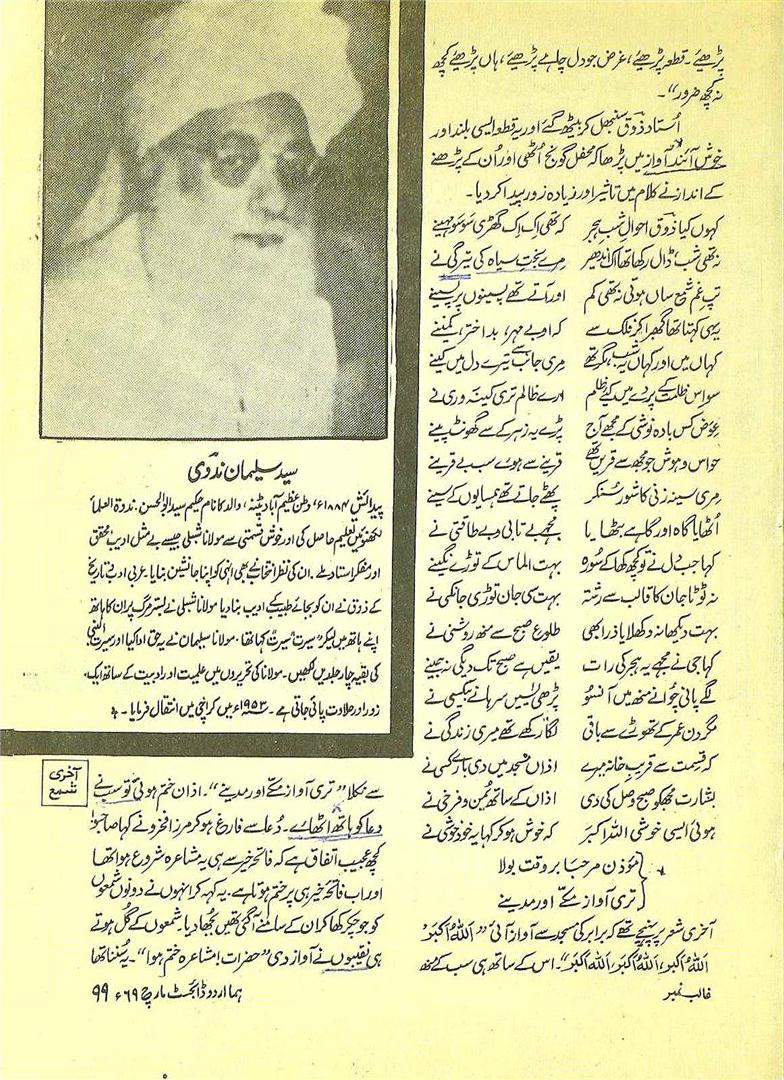 پڑھیئے۔ قطعہ پڑھیئے، غرض جو دل چاہے پڑھیئے، ہاں پڑھیئے کچھ
نہ کچھ ضرور“۔
اُستاد ذوقؔ سنبھل کر بیٹھ گئے اور یہ قطعہ ایسی بلند اور
خوش آئند آواز میں پڑھا کہ محفل گونج اُٹھی اور اُن کے پڑھنے
کے انداز نے کلام میں تاثیر اور زیادہ زور پیدا کر دیا۔
کہوں کیا ذوقؔ احوالِ شبِ ہجر کہ تھی اک اِک گھڑی سو سو مہینے
نہ تھی شب، ڈال رکھا تھا اک اندھیر مرے بختِ سیاہ کی تیرگی نے
تپِ غم شمع ساں ہوتی نہ تھی کم اور آتے تھے پسینوں پر پسینے
یہی کہتا تھا گھبرا کر فلک سے کہ او بے مہر، بد اختر، کمینے
کہاں میں اور کہاں یہ شب مگر تھے مری جانب سے تیرے دل میں کینے
سو اس ظلمت کے پردے میں کیے ظلم ارے ظالم تری کینہ وری نے
عوض کس بادہ نوشی کے مجھے آج پڑے یہ زہر کے سے گھونٹ پینے
حواس و ہوش جو مجھ سے قریں تھے قرینے سے ہوے سب بے قرینے
مری سینہ زنی کا شور سُنکر پھٹے جاتے تھے ہمسایوں کے سینے
اُٹھایا گاہ اور گاہے بٹھایا مجھے بے تابی و بے طاقتی نے
کہا جب دل نے تو کچھ کھا کے سو رہ بہت الماس کے توڑے نگینے
نہ ٹوٹا جان کا قالب سے رشتہ بہت سی جان توڑی جانکنی نے
بہت دیکھا نہ دکھلایا ذرا بھی طلوعِ صبح سے منھ روشنی نے
کہا جی نے مجھے یہ ہجر کی رات یقیں ہے صبح تک دیگی نہ جینے
لگے پانی چوانے منھ میں آنسو پڑھی یٰسں سرہانے بیکسی نے
مگر دن عمر کے تھوڑے سے باقی لگا رکھے تھے میری زندگی نے
کہ قسمت سے قریبِ خانہ میرے اذاں مسجد میں دی بارے کسی نے
بشارت مجھکو صبحِ وصل کی دی اذاں کے ساتھ یُمن و فرخی نے
ہوئی ایسی خوشی اللہ اکبر کہ خوش ہو کر کہا یہ خود خوشی نے
مؤذن مرحبا بر وقت بولا
تری آواز مکّے اور مدینے
آخری شعر پر پہنچے تھے کہ برابر کی مسجد سے آواز آئی ”اَللّٰہُ اَکبَر،
اَللّٰہُ اَکبَر، اَللّٰہُ اَکبَر، اَللّٰہُ اَکبَر“۔ اس کے ساتھ ہی سب کے منھ
غالب نمبر
سید سلیمان ندوی
پیدائش ۱۸۸۴ء، وطن عظیم آباد پٹنہ، والد کا نام حکیم سید ابوالحسن۔ ندوۃ العلماء
لکھنؤ میں تعلیم حاصل کی اور خوش قسمتی سے مولانا شبلی جیسے بے مثل ادیب، محقق
اور مفکر استاد ملے۔ ان کی نظرِ انتخاب نے بھی انہی کو اپنا جانشین بنایا۔ عربی ادب و تاریخ
کے ذوق نے ان کو بجائے طبیب کے ادیب بنا دیا۔ مولانا شبلی نے بسترِ مرگ پر ان کا ہاتھ
اپنے ہاتھ میں لیکر ”سیرت سیرت“ کہا تھا۔ مولانا سلیمان نے یہ حق ادا کیا اور سیرت النبیؐ
کی بقیہ چار جلدیں لکھیں۔ مولانا کی تحریروں میں علمیت اور ادبیت کے ساتھ ایک
زور اور حلاوت پائی جاتی ہے۔ ۱۹۵۳ء میں کراچی میں انتقال فرمایا۔
آخری
شمع
سے نکلا ”تری آواز مکّے اور مدینے“۔ اذان ختم ہوئی تو سب نے
دعا کو ہاتھ اٹھائے۔ دُعا سے فارغ ہو کر مرزا فخرو نے کہا صاحبو!
کچھ عجیب اتفاق ہے کہ فاتحہ خیر سے ہی یہ مشاعرہ شروع ہوا تھا
اور اب فاتحہ خیر ہی پر ختم ہوتا ہے۔ یہ کہہ کر انہوں نے دونوں شمعوں
کو جو چکر کھا کر ان کے سامنے آ گئی تھیں بجھا دیا۔ شمعوں کے گُل ہوتے
ہی نقیبوں نے آواز دی ”حضرات! مشاعرہ ختم ہوا“۔ یہ سُننا تھا
ہما اردو ڈائجسٹ مارچ ۶۹ء ۹۹